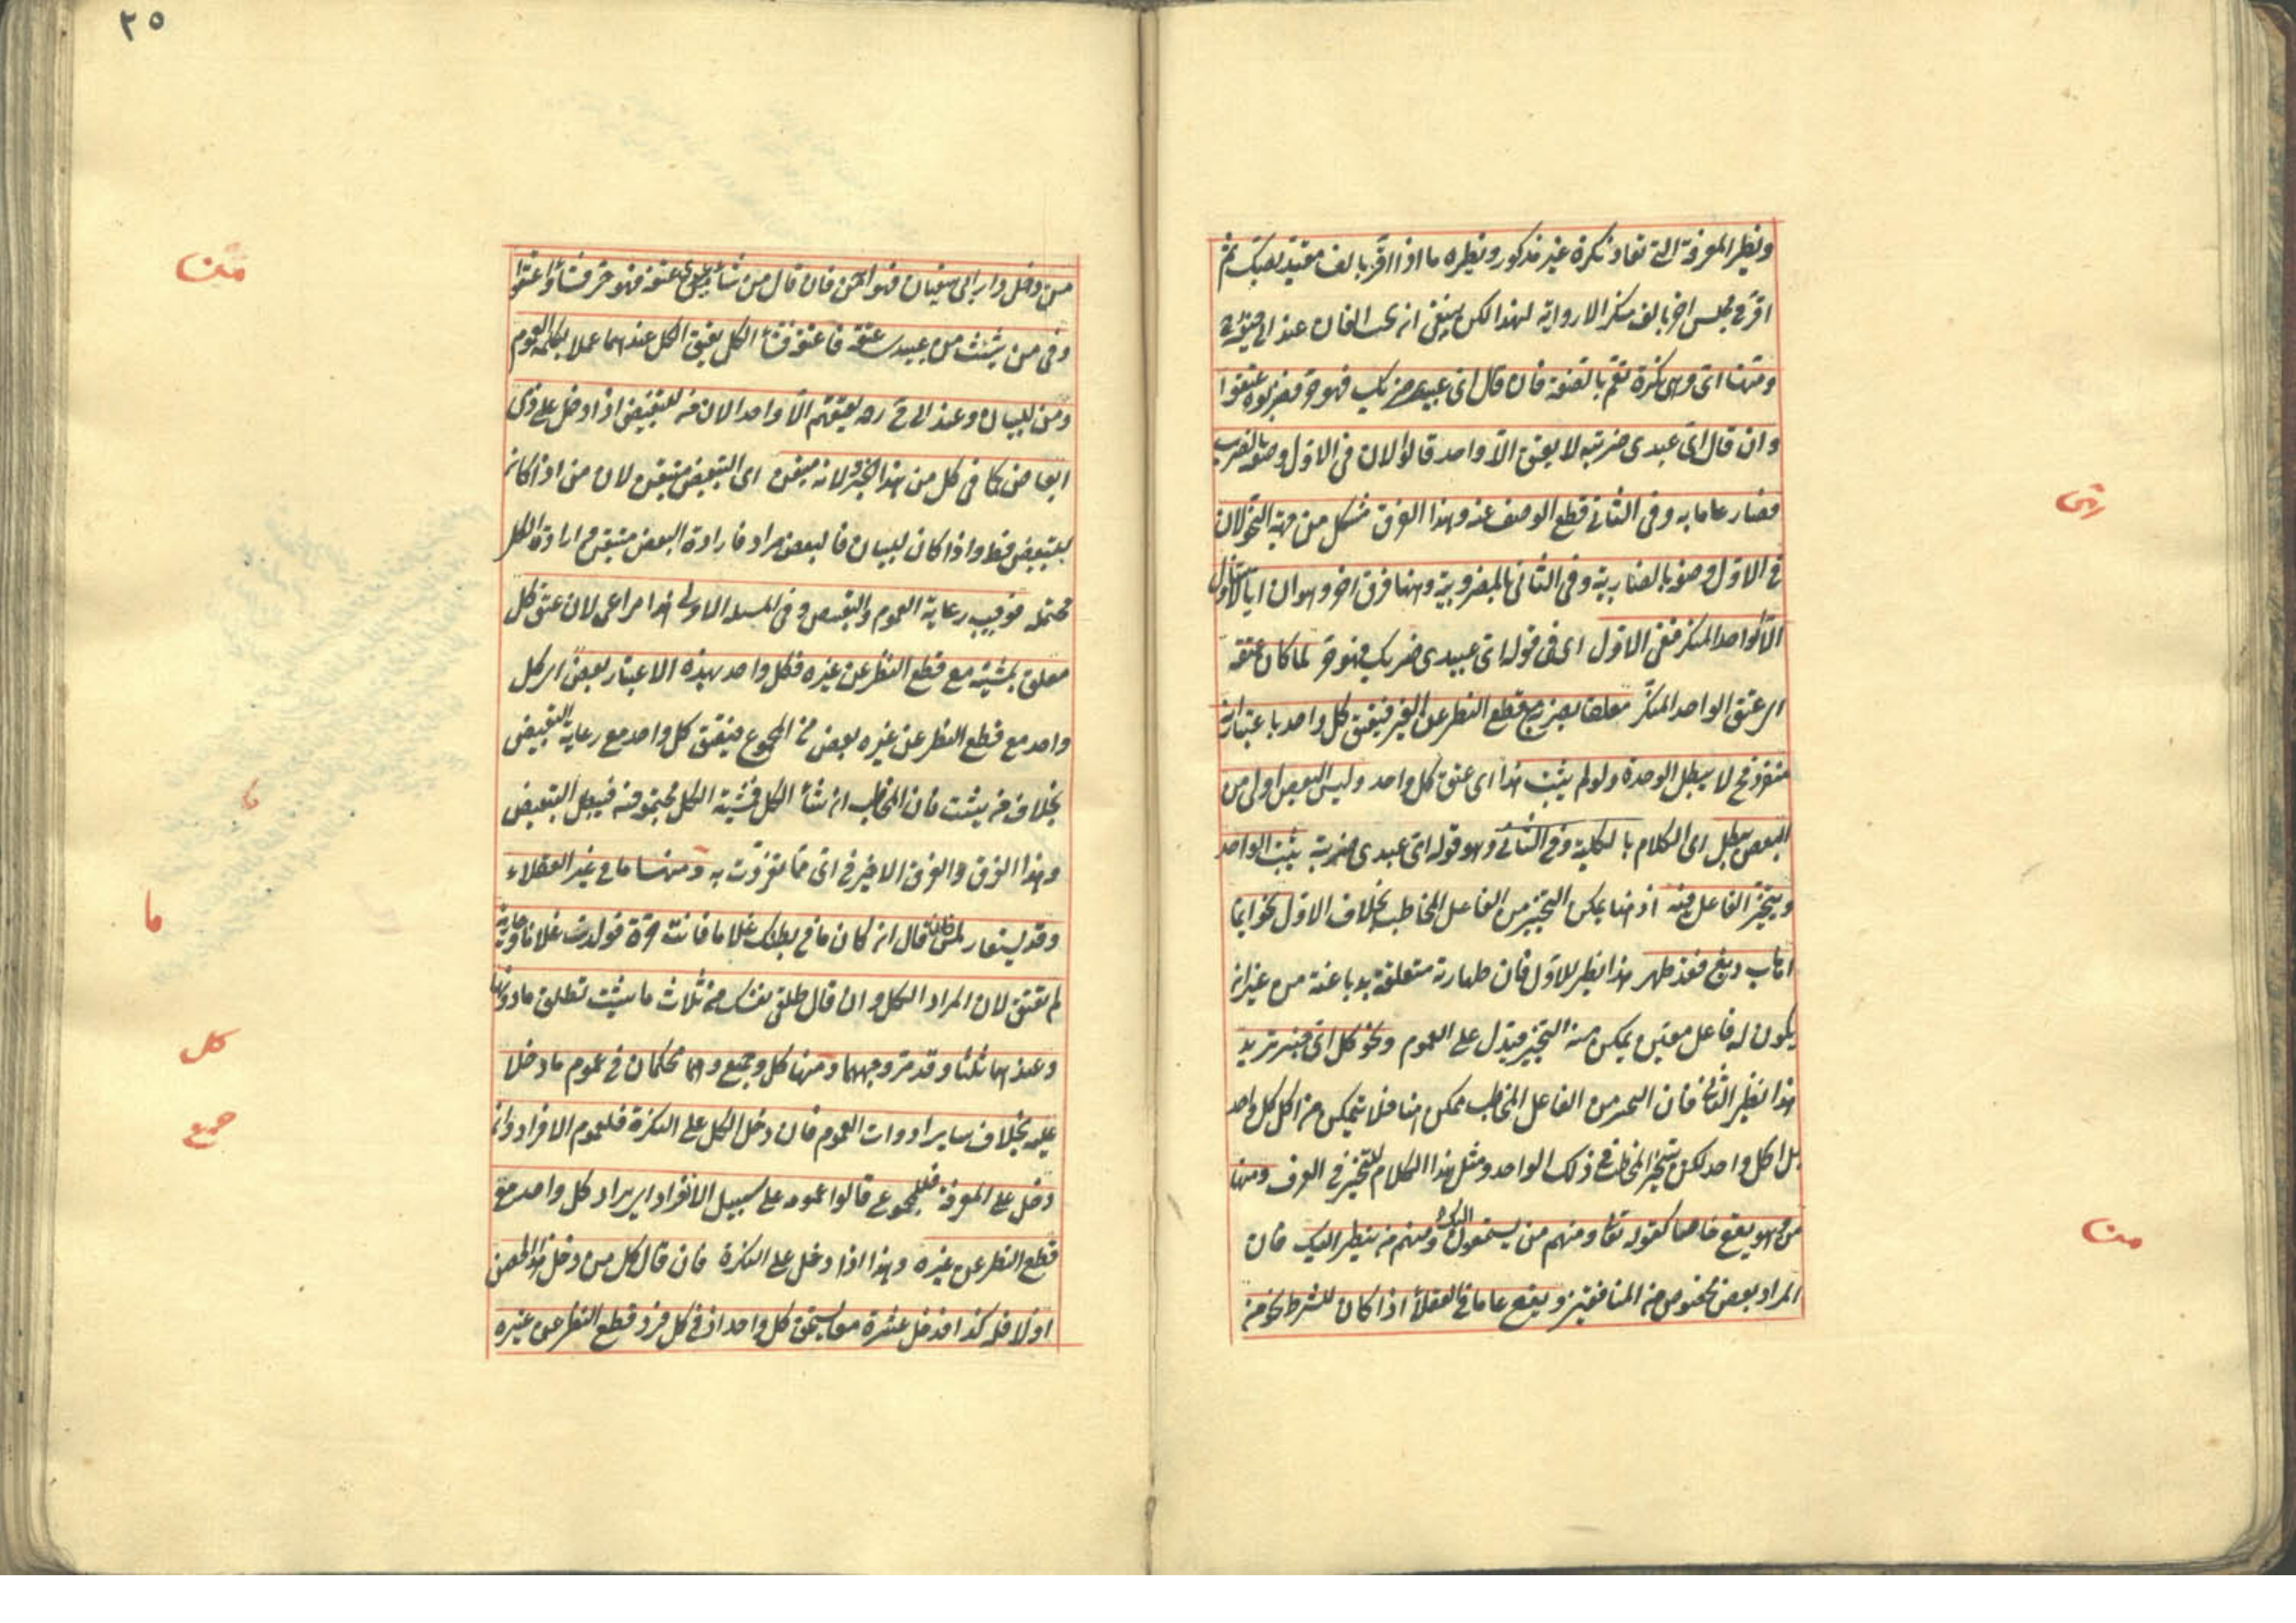 ونظير المعرفة التي تعاد نكرة غير مذكور ونظيره ما اذا اقر بالف مقيد بصك ثم
اقر في مجلس اخر بالف منكر الا رواية لهذا لكن ينبغي ان يجب الفان عند ابي حنيفة
ومنها اي وهي نكرة تعم بالصفة فان قال اي عبيدي ضربك فهو حر فضربوه عتقوا
وان قال اي عبيدي ضربته لا يعتق الا واحد قالوا لان في الاول وصفه بالضرب
فصار عاما به وفي الثاني قطع الوصف عنه وهذا الفرق مشكل من جهة النحو لان
في الاول وصفه بالضاربية وفي الثاني بالمضروبية وهنا فرق اخر وهو ان ايا لا يتناول
الا الواحد المنكر ففي الاول اي في قوله اي عبيدي ضربك فهو حر لما كان عتقه
اي عتق الواحد المنكر معلقا بضربه مع قطع النظر عن الغير فيعتق كل واحد باعتبار انه
منفرد فح لا يبطل الوحدة ولو لم يثبت هذا اي عتق كل واحد وليس البعض اولى من
البعض يبطل اي الكلام بالكلية وفي الثاني وهو قوله اي عبيدي ضربته يثبت الواحد
ويتخير الفاعل فيه اذ هنا يمكن التخيير من الفاعل المخاطب بخلاف الاول نحو ايما
اهاب دبغ فقد طهر هذا نظير للاول فان طهارته متعلقة بدباغته من غير ان
يكون له فاعل معين يمكن منه التخيير فيدل على العموم ونحو كل اي خبز تريد
هذا نظير الثاني فان التخيير من الفاعل المخاطب ممكن هنا فلا يتمكن من اكل كل واحد
بل اكل واحد لكن يتخير المخاطب في ذلك الواحد ومثل هذا الكلام للتخيير في العرف ومنها
من وهو يقع خاصا كقوله تعا ومنهم من يستمعون اليك ومنهم من ينظر اليك فان
المراد بعض مخصوص من المنافقين ويقع عاما في العقلاء اذا كان للشرط نحو من
اي
من
٢٥
من دخل دار ابي سفيان فهو امن فان قال من شاء من عبيدي عتقه فهو حر فشاؤا عتقوا
وفي من شئت من عبيدي عتقه فاعتقه فشاء الكل يعتق الكل عندهما عملا بكلمة العموم
ومن للبيان وعند ابي ح ره يعتقهم الا واحدا لان من للتبعيض اذا دخل على ذي
ابعاض كما في كل من هذا الخبز ولانه متيقن اي التبعيض متيقن لان من اذا كان
للتبعيض فظ واذا كان للبيان فالبعض مراد فارادة البعض متيقن وارادة الكل
محتملة فوجب رعاية العموم والتبعيض وفي المسئلة الاولى هذا مراعى لان عتق كل
معلق بمشيته مع قطع النظر عن غيره فكل واحد بهذه الاعتبار بعض اي كل
واحد مع قطع النظر عن غيره بعض من المجموع فيعتق كل واحد مع رعاية التبعيض
بخلاف من شئت فان المخاطب ان شاء الكل فمشية الكل مجتمعة فيه فيبطل التبعيض
وهذا الفرق والفرق الاخير في اي مما تفردت به ومنها ما في غير العقلاء
وقد يستعار لمن فان قال ان كان ما في بطنك غلاما فانت حرة فولدت غلاما وجارية
لم تعتق لان المراد الكل وان قال طلقي نفسك من ثلاث ما شئت تطلق ما دونها
وعندهما ثلثا وقد مر وجههما ومنها كل وجميع وهما محكمان في عموم ما دخلا
عليه بخلاف ساير ادوات العموم فان دخل الكل على النكرة فلعموم الافراد وان
دخل على المعرفة فللمجموع قالوا عمومه على سبيل الانفراد اي يراد كل واحد مع
قطع النظر عن غيره وهذا اذا دخل على النكرة فان قال كل من دخل هذا الحصن
اولا فله كذا فدخل عشرة معا يستحق كل واحد اذ في كل فرد قطع النظر عن غيره
من
ما
كل
جميع